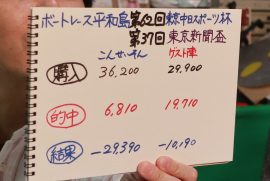 ボートレース平和島第62回東京中日スポーツ杯
第37回東京新聞盃
こんせいさん ゲスト陣
購入 36,200 29,900
的中 6,810 19,710
結果 -29,390 -10,190